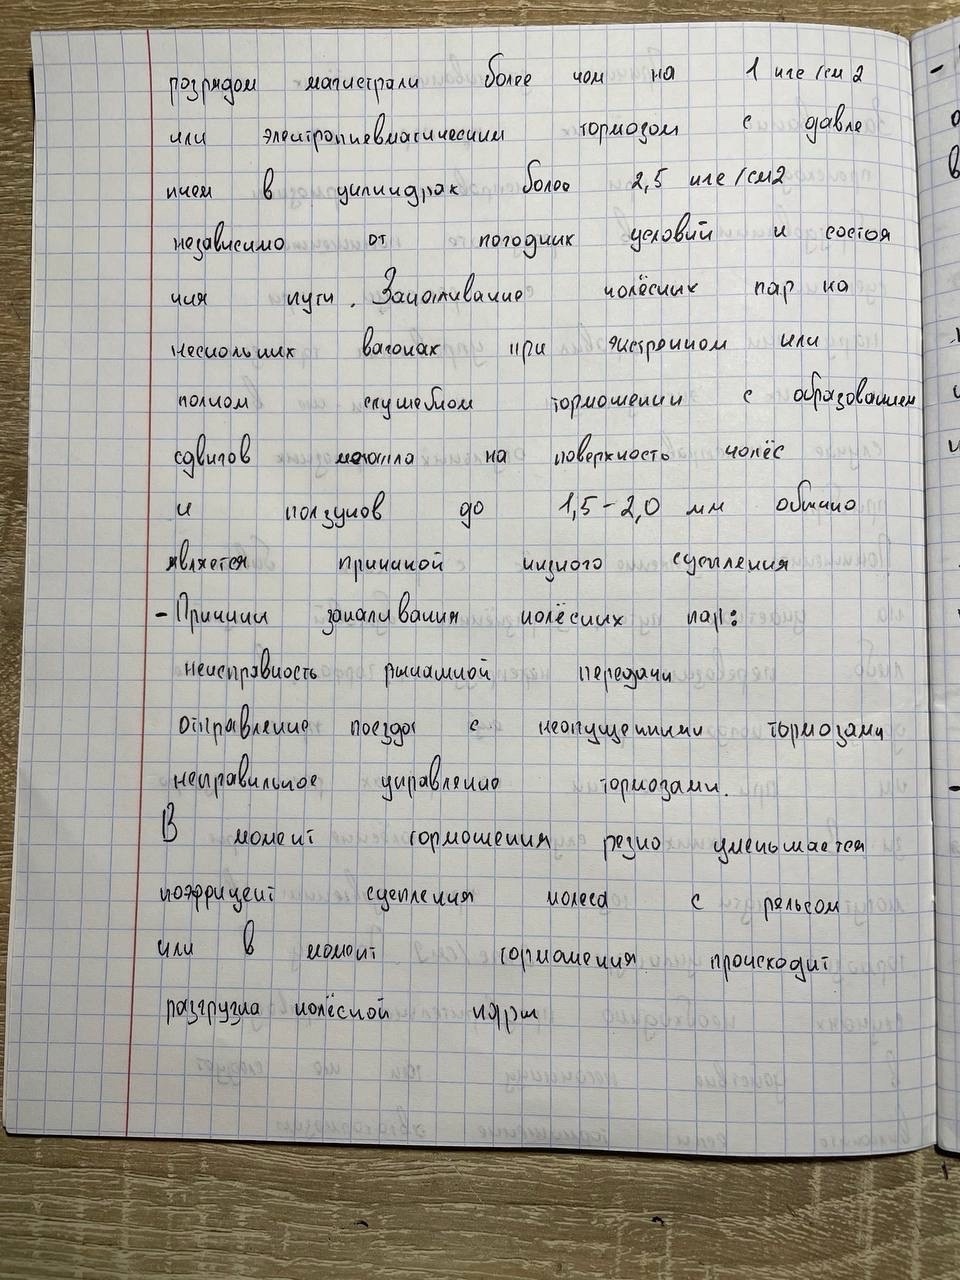 розрядом магистрали более чем на 1 кгс/см2
или электропневматическим тормозом с давле
нием в цилиндрах более 2,5 кгс/см2
независимо от погодних условий и состоя
ния пути. Заклинивание колёсних пар на
нескольких вагонах при экстренном или
полном служебном торможении с образованием
сдвигов металла на поверхность колёс
и ползунов до 1,5-2,0 мм обычно
является причиной низкого сцепления
- Причини заклинивания колёсних пар:
неисправность рычажной передачи
отправление поезда с неопущенними тормозами
неправильное управление тормозами.
В момент торможения резко уменьшается
коэффицент сцепления колеса с рельсом
или в момент торможения происходит
разгрузка колёсной пары